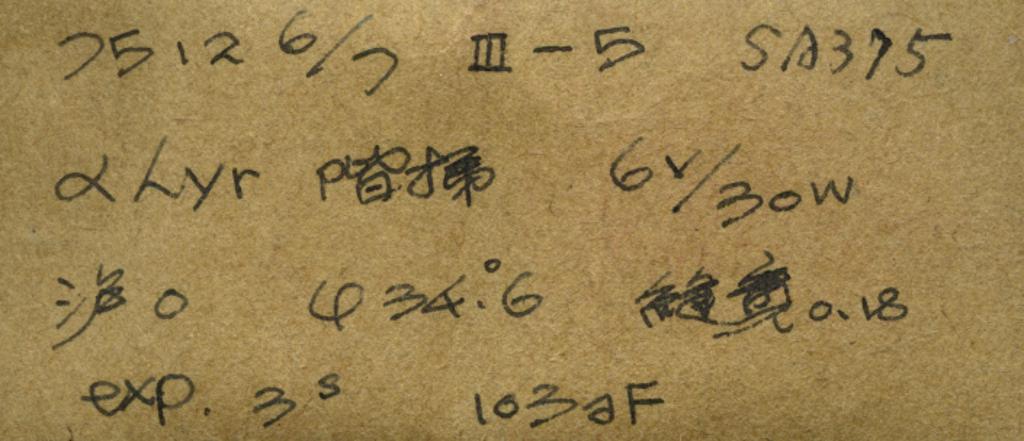 7512 6/7 III-5 SA375
α Lyr 階掃 6V/30W
0 φ 34.°6 縫寛 0.18
exp. 3ˢ 103aF